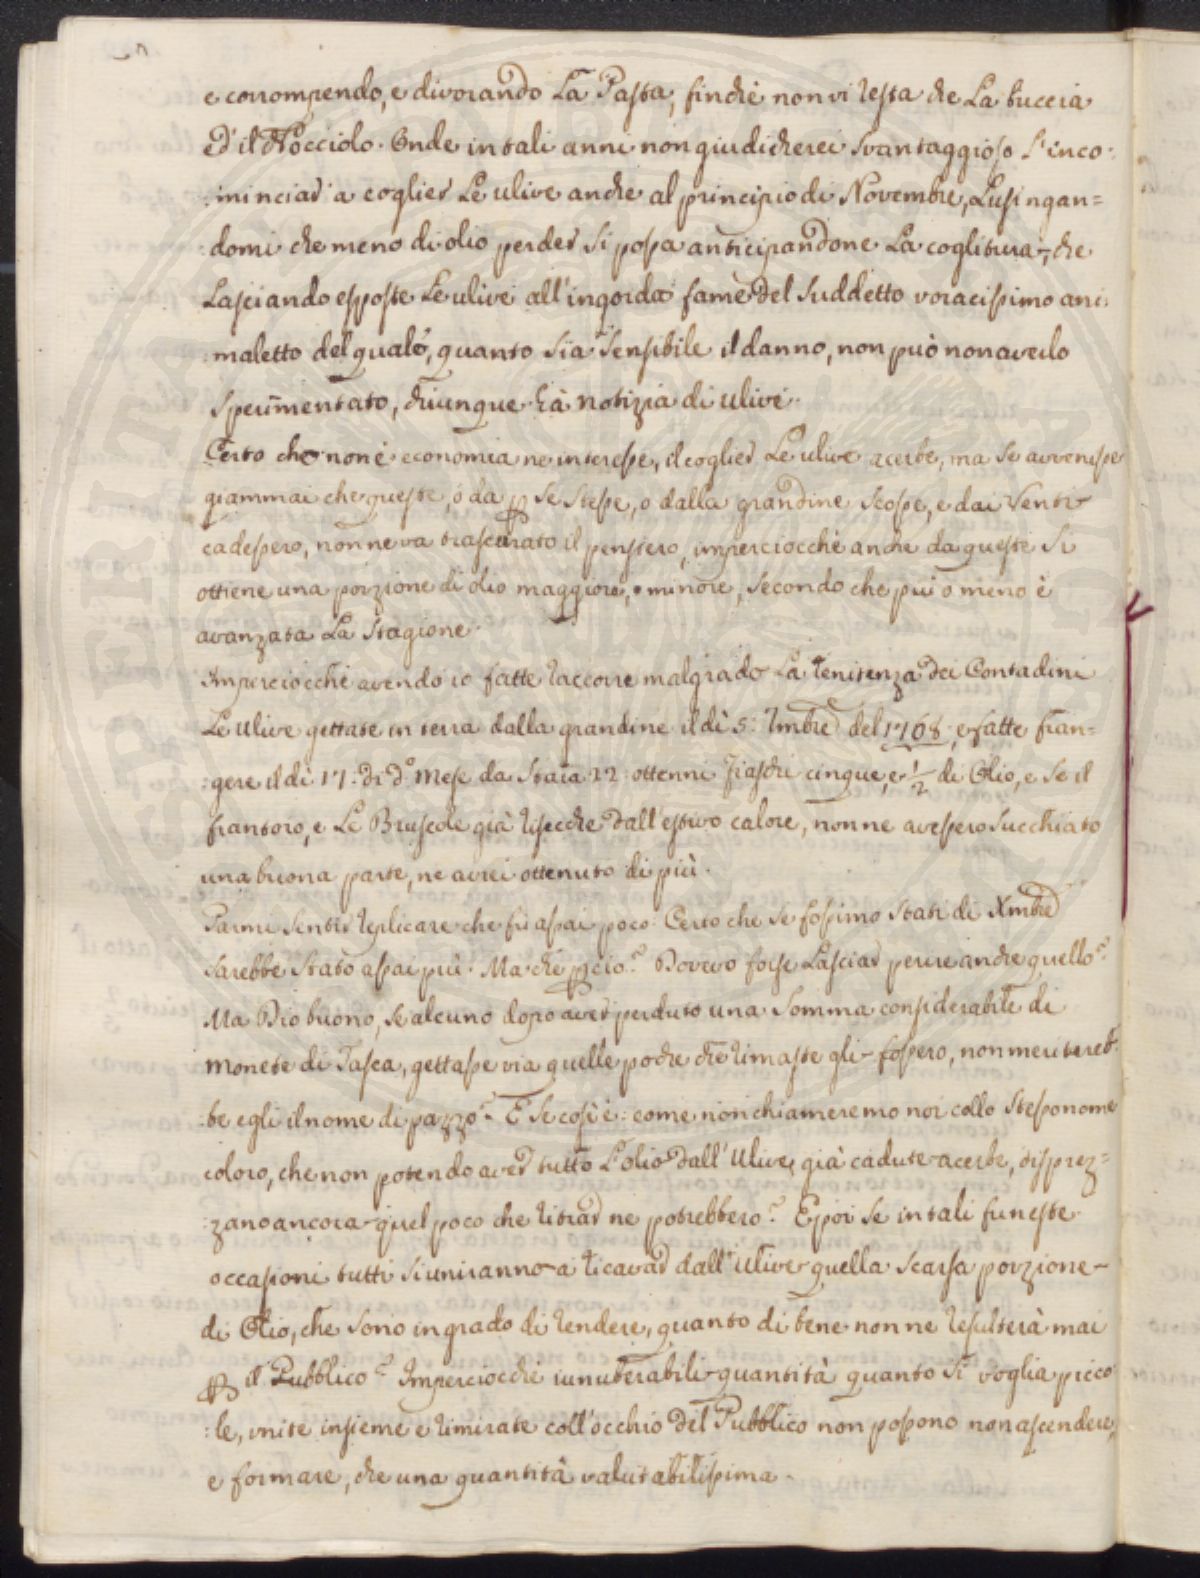 e corrompendo, e divorando La Pasta, finchè non vi resta che La buccia
ed il Nocciolo. Onde in tali anni non giudicherei svantaggioso L'inco:
:minciar a coglier Le ulive anche al principio di Novembre, Lusingan=
:domi che meno di olio perder si possa anticipandone La coglitura, che
Lasciando esposte Le ulive all'ingorda fame del suddetto voracissimo ani:
:maletto del quale, quanto sia sensibile il danno, non può non averlo
sperimentato, chiunque hà notizia di ulive.
Certo che non è economia ne interesse, il coglier Le ulive acerbe, ma se avvenisse
giammai che queste, ò da p se stesse, o dalla grandine scosse, e dai Venti
cadessero, non ne va trascurato il pensiero, imperciocchè anche da queste si
ottiene una porzione di olio maggiore, o minore, secondo che più o meno è
avanzata La stagione.
Imperciocchè avendo io fatte raccorre malgrado La renitenza dei Contadini
Le ulive gettate in terra dalla grandine il dì 5: 7mbre del 1768, e fatte fran=
:gere il dì 17: di do. Mese da Staia 22: ottenni Fiaschi cinque, e 1/2 di Olio, e se il
frantoio, e Le Bruscole già risecche dall'estivo calore, non ne avessero succhiato
una buona parte, ne avrei ottenuto di più.
Parmi sentir replicare che fù assai poco. Certo che se fossimo stati di Xmbre
sarebbe stato assai più. Ma che pciò? Dovevo forse Lasciar perire anche quello?
Ma Dio buono, se alcuno dopo aver perduto una somma considerabile di
monete di Tasca, gettasse via quelle poche che rimaste gli fossero, non meritereb:
:be egli il nome di pazzo? E se così è: come non chiameremo noi collo stesso nome
coloro, che non potendo aver tutto L'olio dall'Ulive già cadute acerbe, disprez=
:zano ancora quel poco che ritrar ne potrebbero? E poi se in tali funeste
occasioni tutti si uniranno a ricavar dall'Ulive quella scarsa porzione
di Olio, che sono in grado di rendere, quanto di bene non ne resulterà mai
p il Pubblico? Imperciocchè inunberabili quantità quanto si voglia picco
:le, unite insieme e rimirate coll'occhio del Pubblico non possono non ascendere,
e formare, che una quantità valutabilissima.